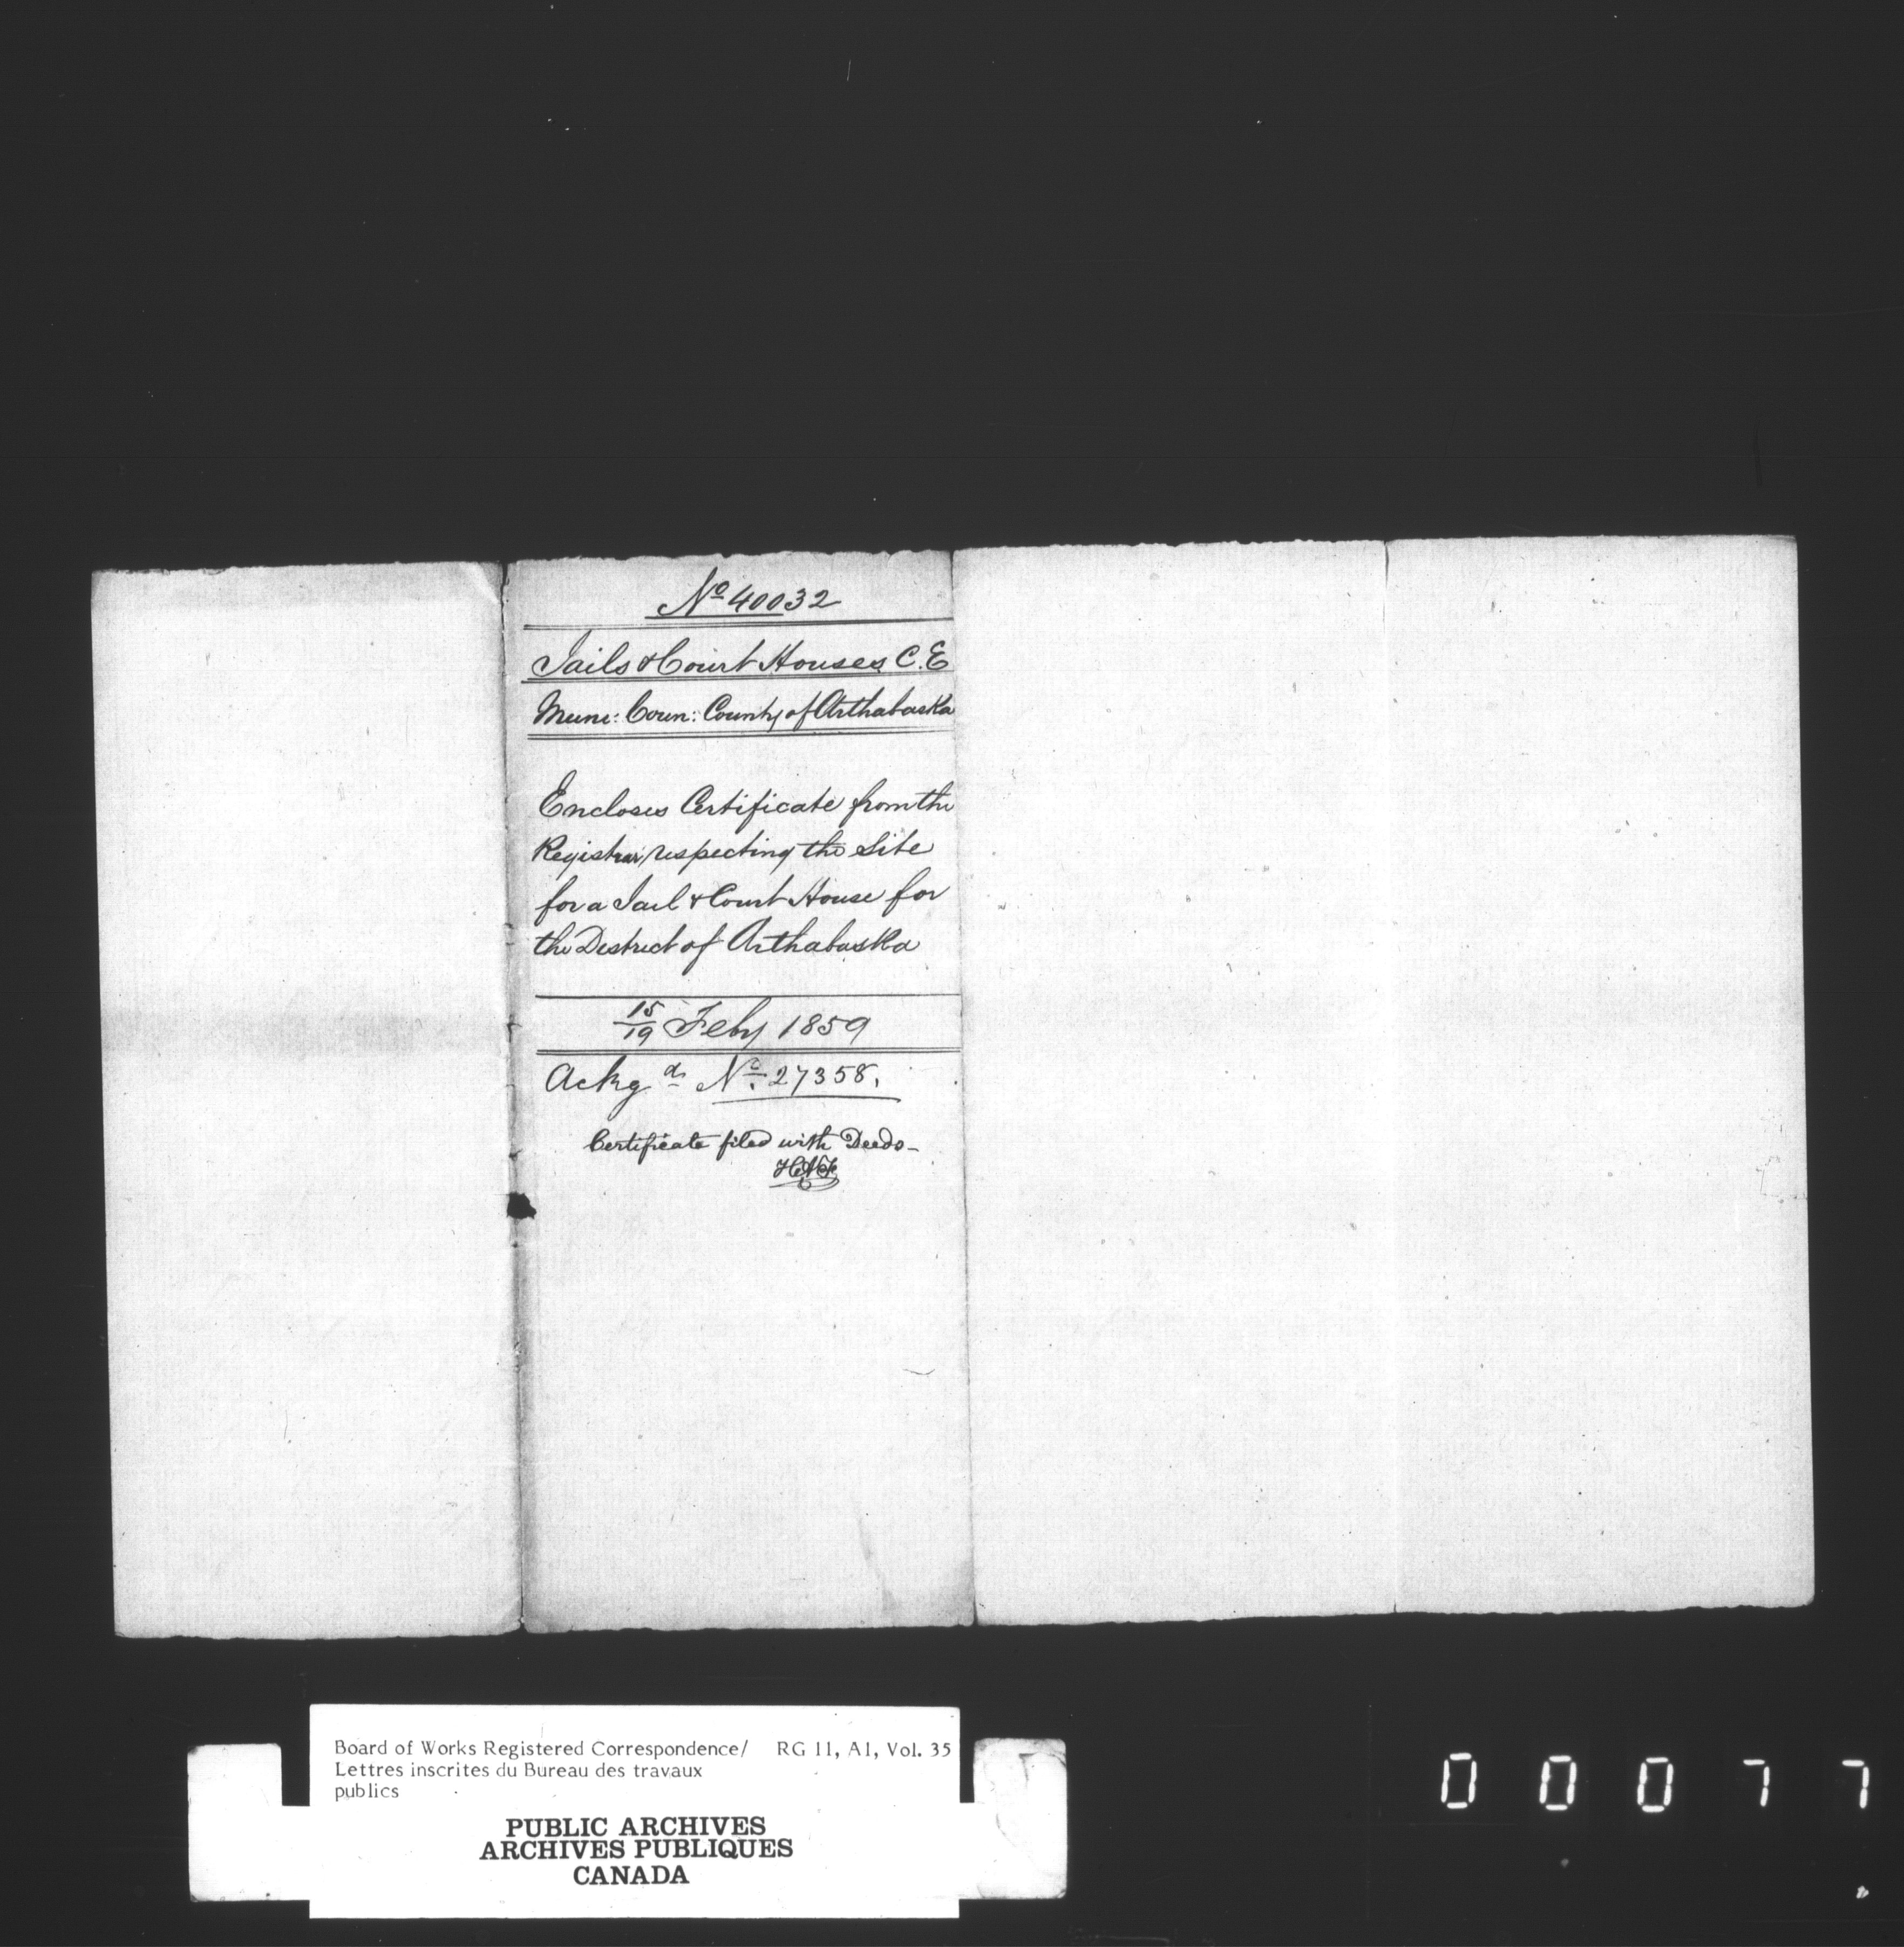 No 40032
Jails & Court Houses C.E
Muni: Coun: County of Arthabaska
Encloses Certificate from the
Registrar respecting the Site
for a Jail & Court House for
the District of Arthabaska
15/19 Feby 1859
Ackgd No. 27358.
Certificate filed with Deeds -
Board of Works Registered Correspondence/ RG 11, A1, Vol. 35
Lettres inscrites du Bureau des travaux
publics
PUBLIC ARCHIVES
ARCHIVES PUBLIQUES
CANADA
00077